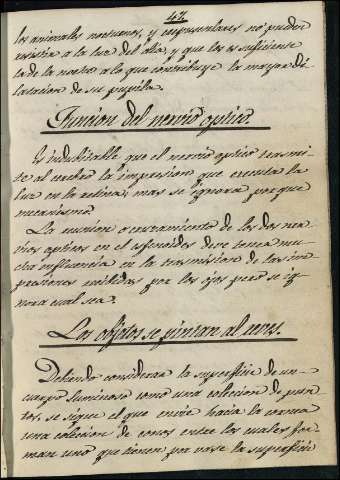 42
los animales nocturnos, y crepusculares no puedan
resistir a la luz del dia, y que les es suficiente
la de la noche a lo que contribuye la mayor di
latacion de su pupila.
Funcion del nervio optico.
Es indubitable que el nervio optico trasmi-
te al cerebro la impresion que ejecuta la
luz en la retina; mas se ignora por que
mecanismo.
La union o cruzamiento de los dos ner-
vios opticos en el esfenoides debe tener mu-
cha influencia en la trasmision de las im
presiones recibidas por los ojos pero se ig
nora cual sea.
Los objetos se pintan al reves.
Debiendo considerar la superficie de un
cuerpo luminoso como una coleccion de pun-
tos, se sigue el que envie hacia la cornea
una coleccion de conos entre los cuales for-
man uno que tienen por vase la superficie